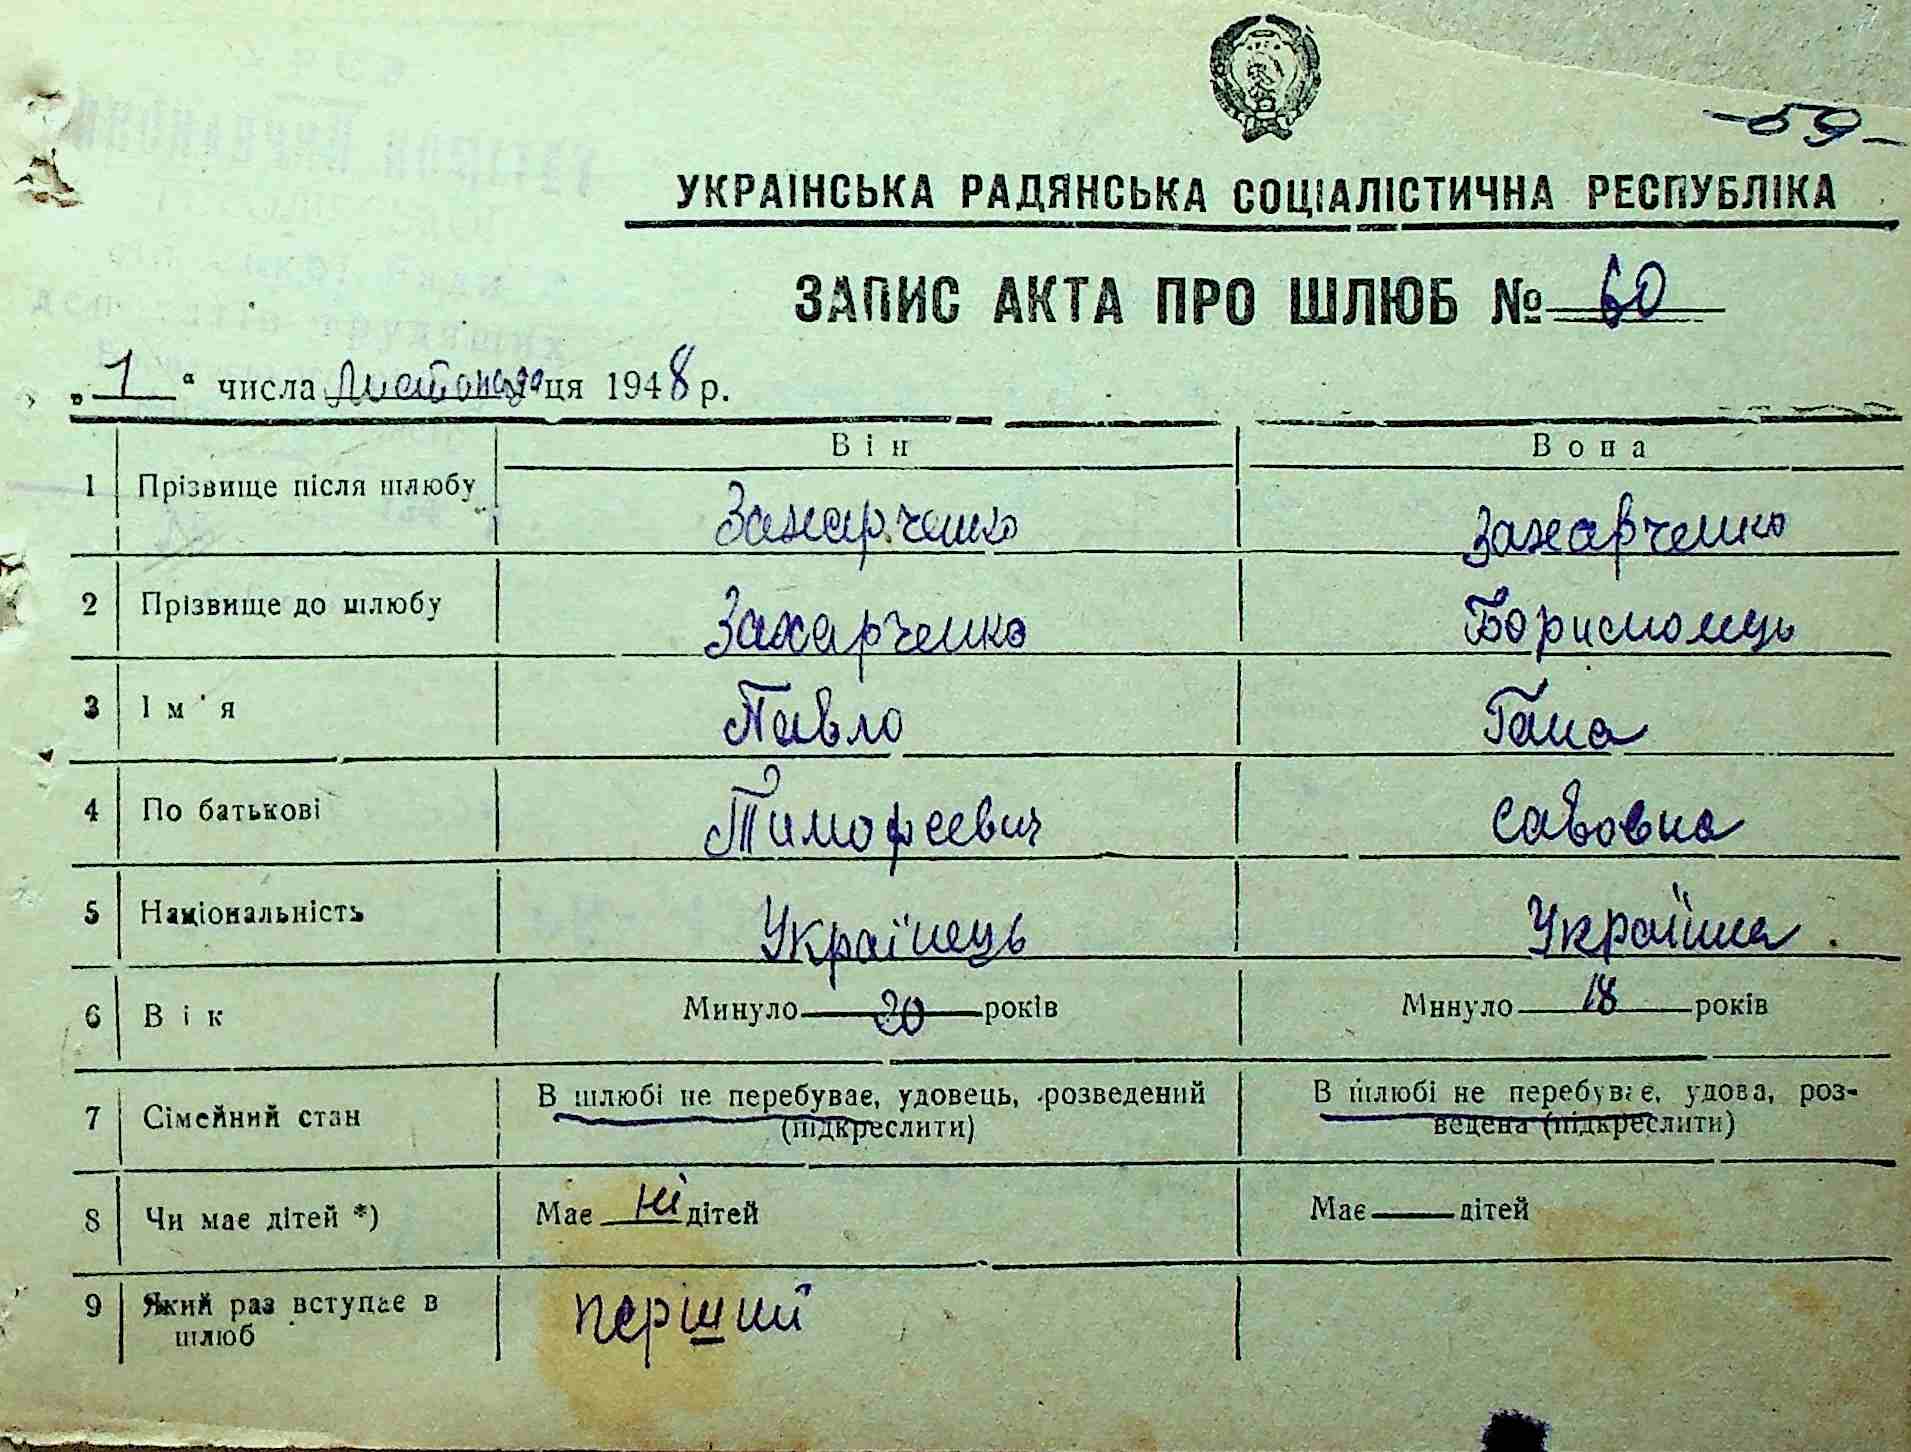 -59-
УКРАЇНСЬКА РАДЯНСЬКА СОЦІАЛІСТИЧНА РЕСПУБЛІКА
ЗАПИС АКТА ПРО ШЛЮБ № 60
„1“ числа Листопада ця 1948 р.
Він Вона
1 Прізвище після шлюбу Захарченко Захарченко
2 Прізвище до шлюбу Захарченко
3 Ім'я Павло Гана
4 По батькові Тимофеевич Савовна
5 Національність Українець Українка
6 Вік Минуло 20 років Минуло 18 років
7 Сімейний стан В шлюбі не перебуває, удовець, розведений В шлюбі не перебуває, удова, роз-
(підкреслити) ведена (підкреслити)
8 Чи має дітей *) Має ні дітей Має — дітей
9 Який раз вступає в перший
шлюб